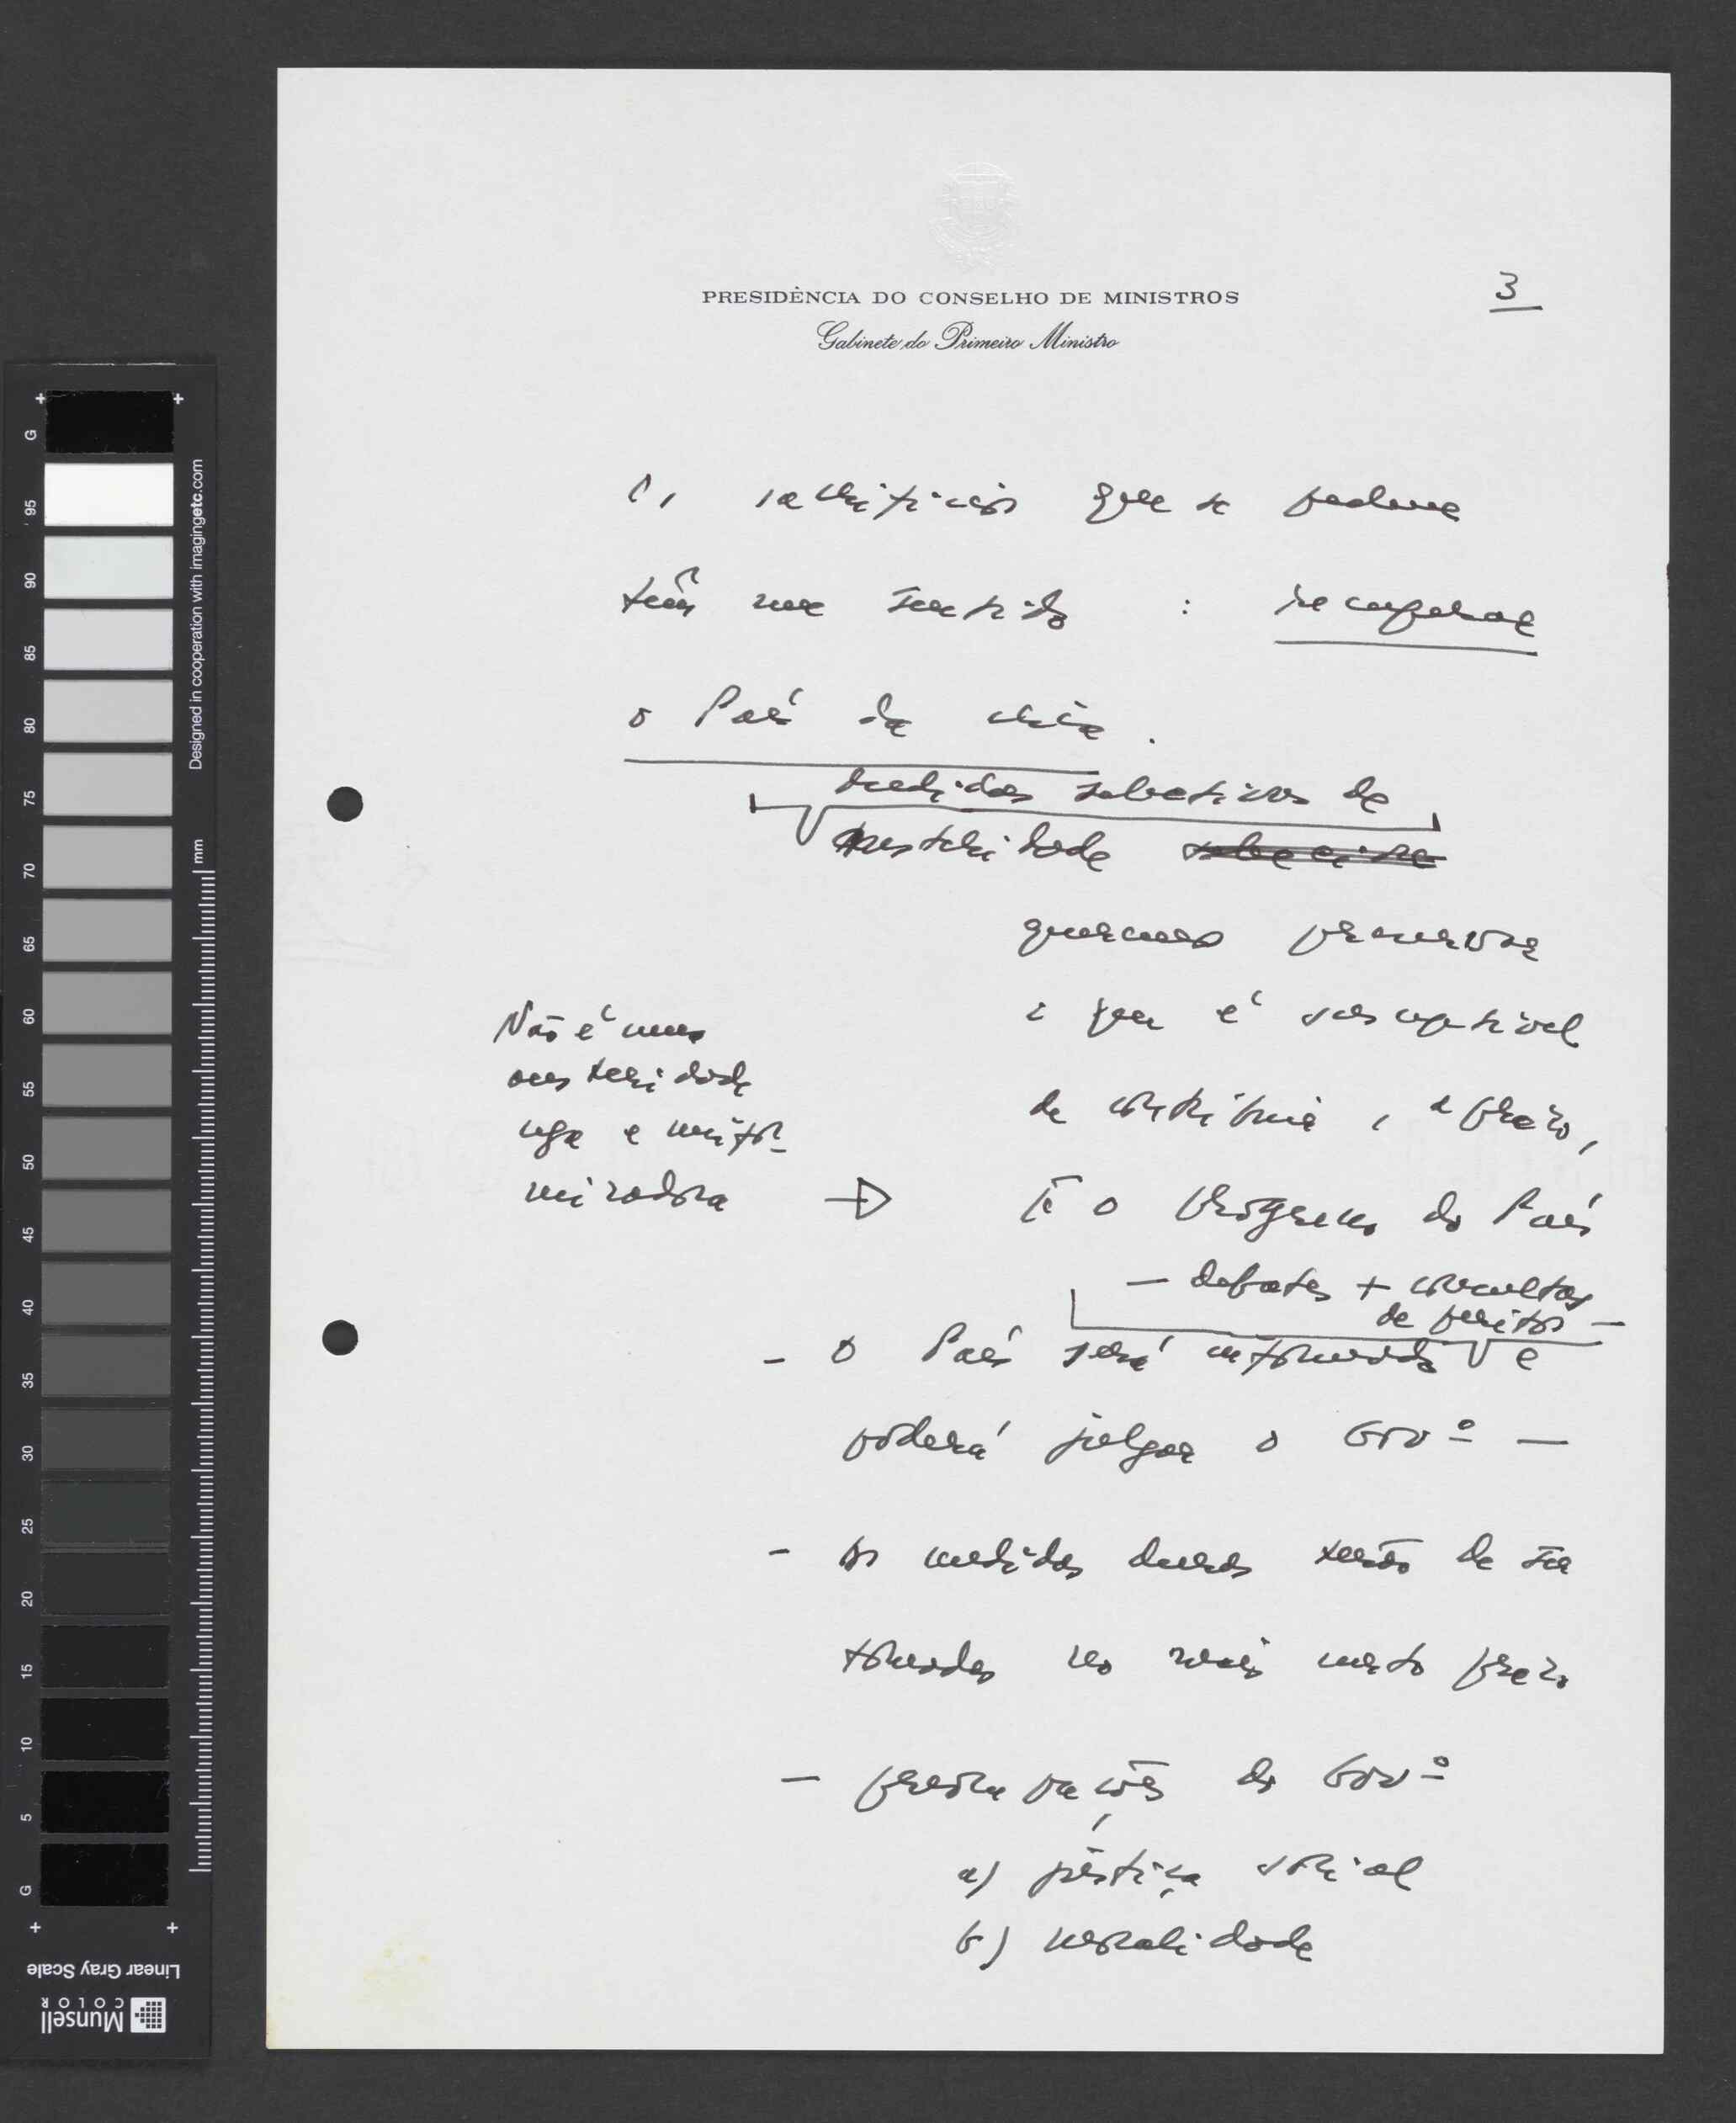 PRESIDÊNCIA DO CONSELHO DE MINISTROS
Gabinete do Primeiro Ministro
3
Os sacrifícios que se pedem
têm um sentido : recuperar
o País da crise.
medidas selectivas de
austeridade
queremos preservar
o que é susceptível
de contribuir, a prazo,
Não é uma
austeridade
cega e unifor-
mizadora
→ p/ o progresso do País
— debates + consultas
de peritos —
- O País será informado e
poderá julgar o Govº —
- As medidas duras terão de ser
tomadas no mais curto prazo
— preocupações do Govº
a) justiça social
b) moralidade
G 95 90 85 80 75 70 65 60 55 50 45 40 35 30 25 20 15 10 5 G
Designed in cooperation with imagingetc.com
mm
Linear Gray Scale
Munsell
COLOR